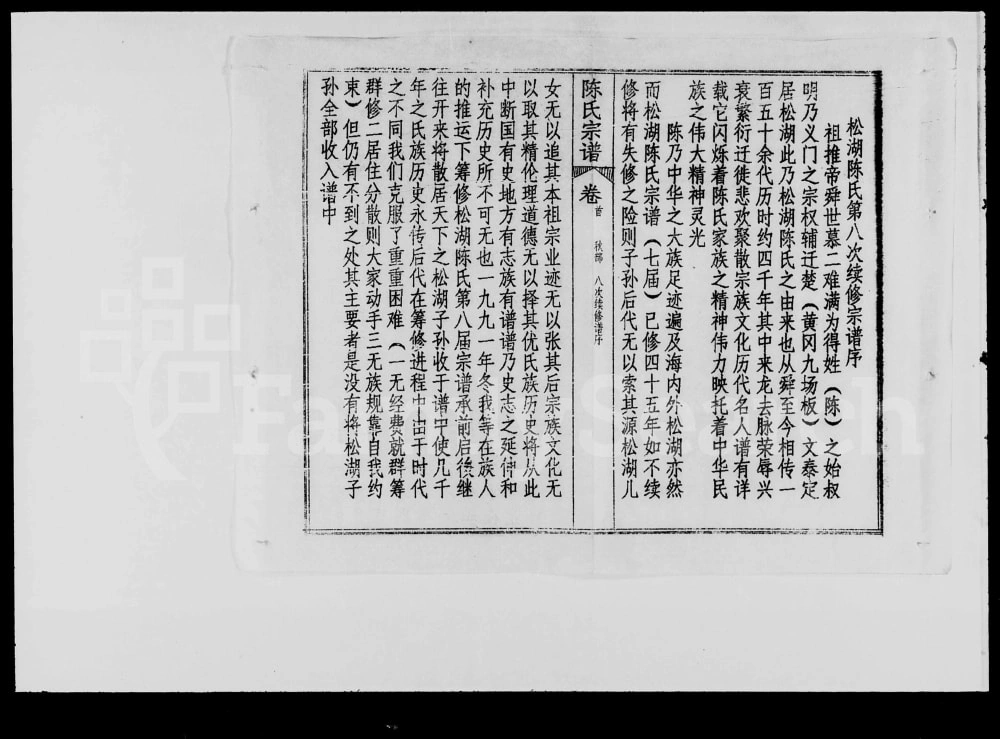 松湖陈氏第八次续修宗谱序
祖推帝舜世慕二难满为得姓（陈）之始叔
明乃义门之宗权辅迁楚（黄冈九场板）文泰定
居松湖此乃松湖陈氏之由来也从舜至今相传一
百五十余代历时约四千年其中来龙去脉荣辱兴
衰繁衍迁徒悲欢聚散宗族文化历代名人谱有详
载它闪烁着陈氏家族之精神伟力映托着中华民
族之伟大精神灵光
陈乃中华之大族足迹遍及海内外松湖亦然
而松湖陈氏宗谱（七届）已修四十五年如不续
修将有失修之险则子孙后代无以索其源松湖儿
陈氏宗谱 卷首 秋部 八次续修谱序
女无以追其本祖宗业迹无以张其后宗族文化无
以取其精伦理道德无以择其优氏族历史将从此
中断国有史地方有志族有谱谱乃史志之延伸和
补充历史所不可无也一九九一年冬我等在族人
的推运下筹修松湖陈氏第八届宗谱承前启後继
往开来将散居天下之松湖子孙收于谱中使几千
年之氏族历史永传后代在筹修进程中由于时代
之不同我们克服了重重困难（一无经费就群筹
群修二居住分散则大家动手三无族规靠自我约
束）但仍有不到之处其主要者是没有将松湖子
孙全部收入谱中
FamilySearch